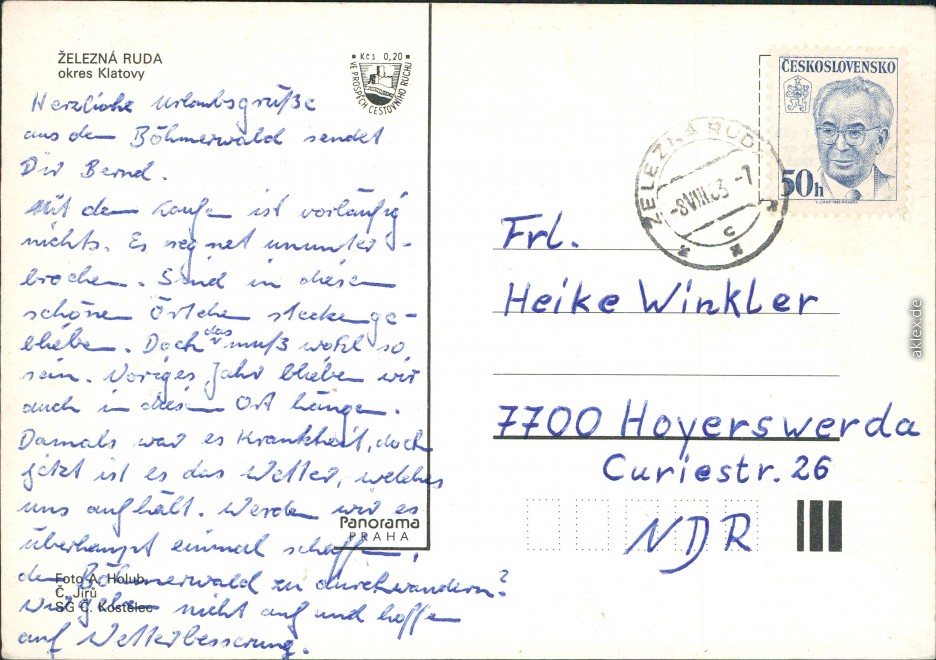 ŽELEZNÁ RUDA
okres Klatovy
Kčs 0,20
VE PROSPĚCH CESTOVNÍHO RUCHU
Herzliche Urlaubsgrüße
aus dem Böhmerwald sendet
Dir Bernd.
Mit dem Laufen ist vorläufig
nichts. Es regnet ununter-
brochen. Sind in diesem
schönen Örtchen steckenge-
blieben. Doch das muß wohl so
sein. Voriges Jahr blieben wir
auch in diesem Ort hängen.
Damals war es Krankheit, doch
jetzt ist es das Wetter, welches
uns aufhält. Werden wir es
überhaupt einmal schaffen,
den Böhmerwald zu durchwandern?
Wir geben nicht auf und hoffen
auf Wetterbesserung.
Panorama
PRAHA
Foto A. Holub,
Č. Jirů
SG Č. Kostelec
ČESKOSLOVENSKO
50h
ŽELEZNÁ RUDA
-8.VIII.83-7
c
Frl.
Heike Winkler
7700 Hoyerswerda
Curiestr. 26
NDR
aklex.de